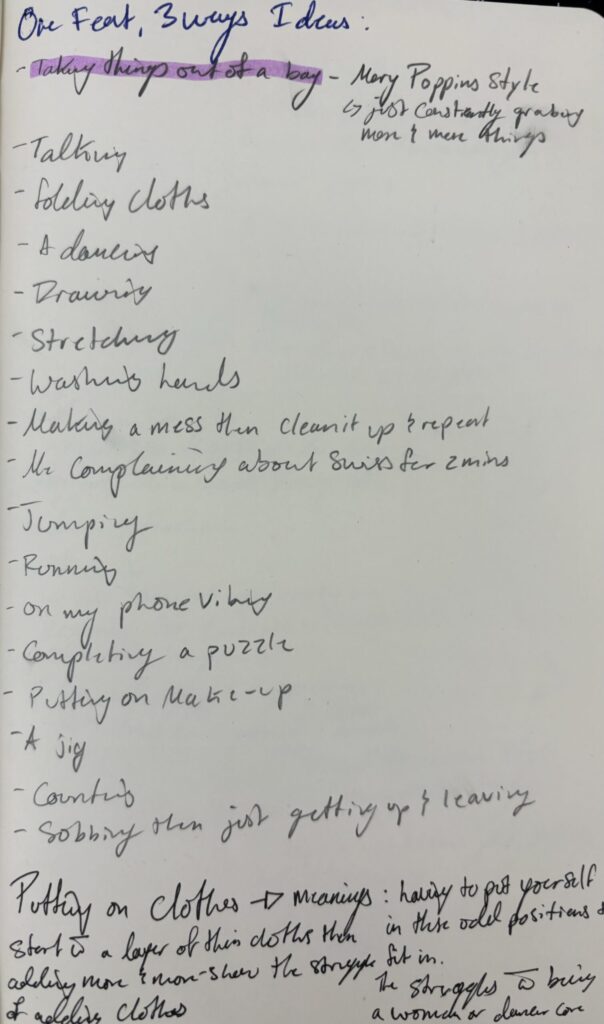 One Feat, 3 ways Ideas:
- Taking things out of a bag - Mary Poppins Style
↳ just constantly grabing
more & more things
- Talking
- folding cloths
- A dancing
- Drawing
- Stretching
- Washing hands
- Making a mess then clean it up & repeat
- Me Complaining about Swiss for 2mins
- Jumping
- Running
- on my phone vibing
- Completing a puzzle
- Putting on Make-up
- A jig
- Counting
- Sobbing then just getting up & leaving
Putting on clothes → Meanings: having to put yourself
in these odd positions to
fit in.
start w a layer of thin cloths then
adding more & more - show the struggle
of adding clothes
The struggles w being
a women or dancer